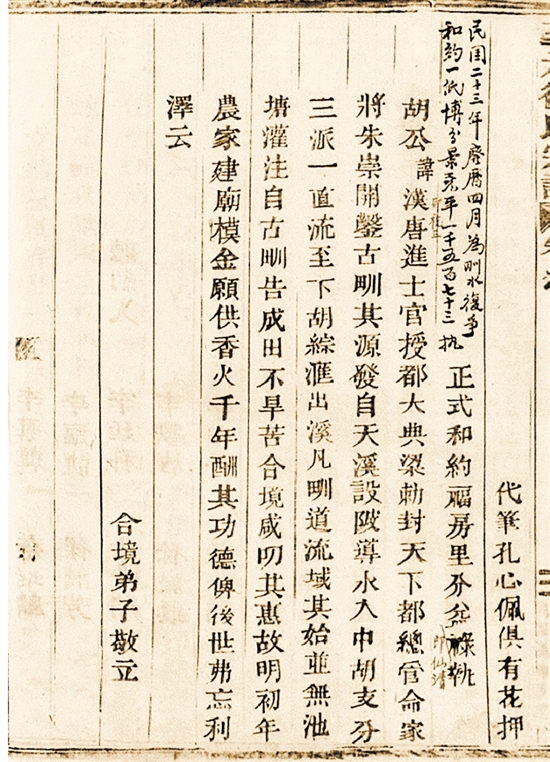 代筆孔心佩俱有花押
民国二十三年廢曆四月為甽水復爭
和約一帋博分景素年一千五百七十三执
正式和約福房里分岔祿執
即仙清
胡公諱漢唐進士官授都大典梁勅封天下都總管命家
將朱崇開鑿古甽其源發自天溪設陂導水入中胡支分
三派一直流至下胡綜滙出溪凡甽道流域其始並無池
塘灌注自古甽告成田不旱苦合境咸叨其惠故明初年
農家建廟模金願供香火千年酬其功德俾後世弗忘利
澤云
合境弟子敬立